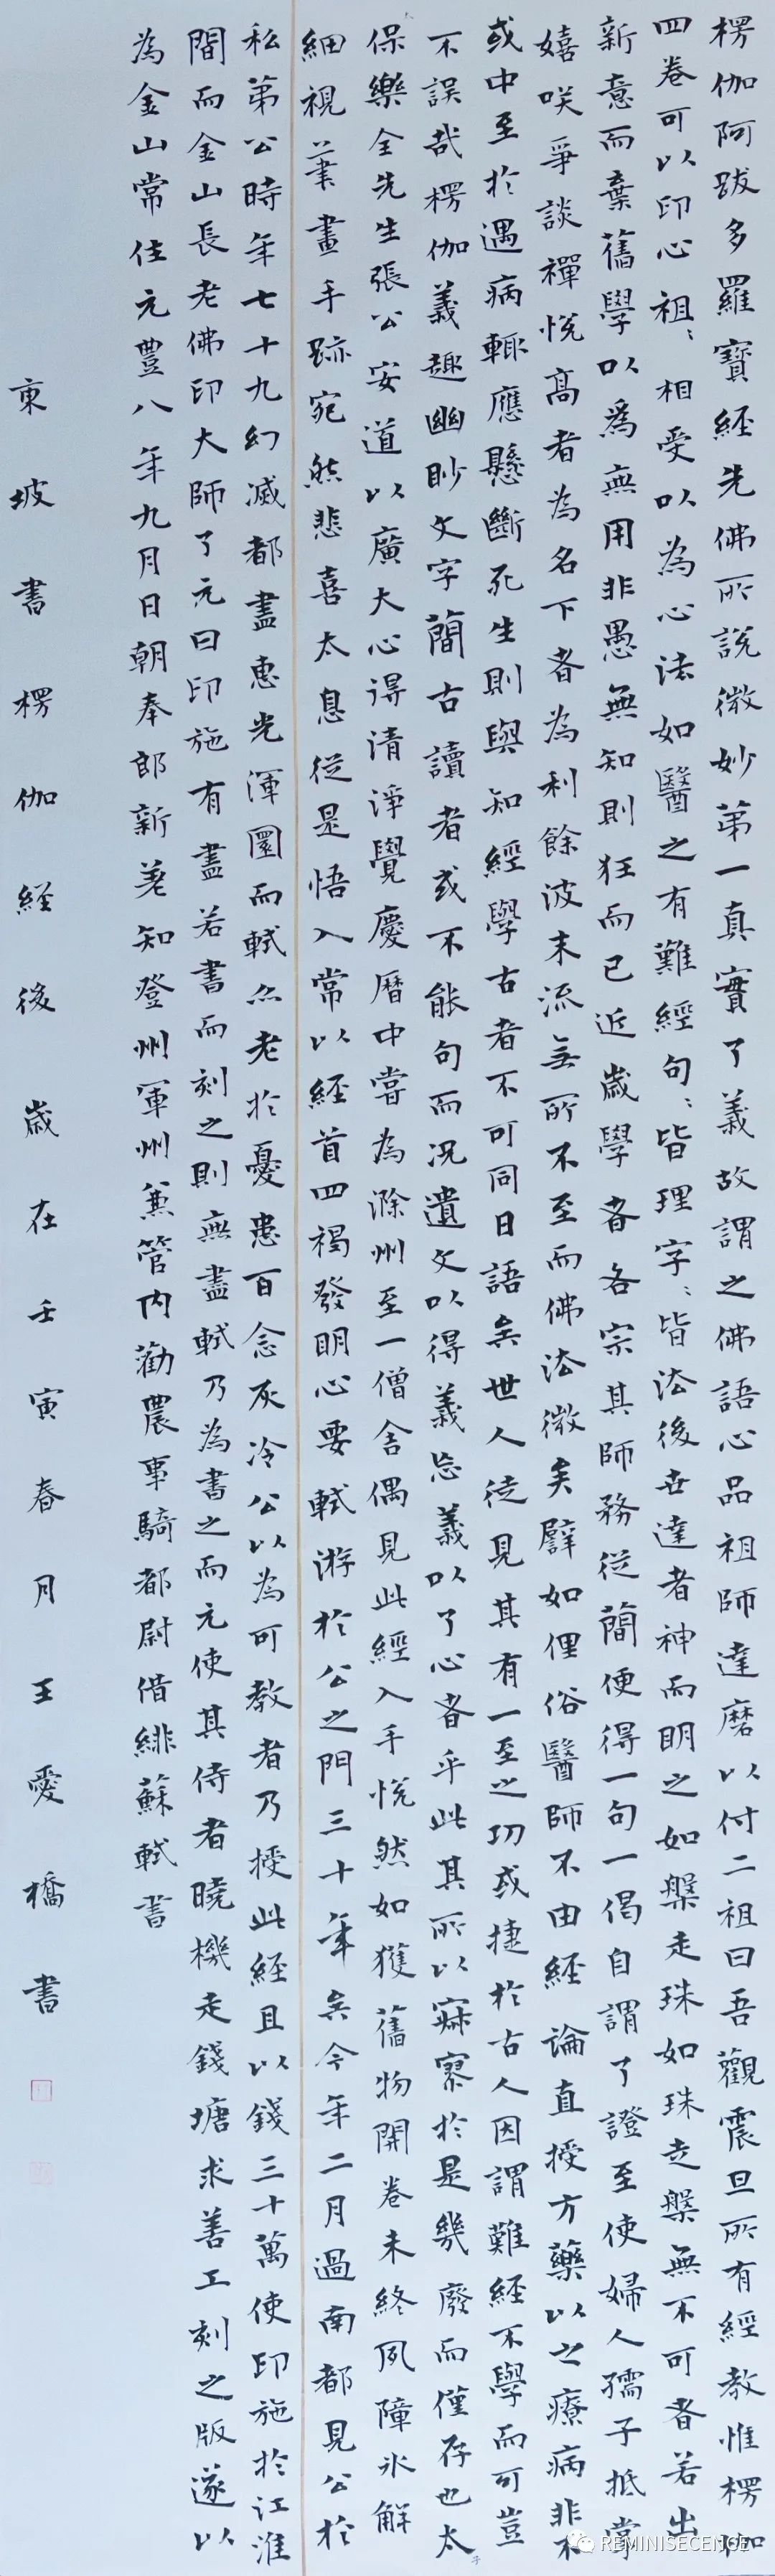 楞伽阿跋多羅寶經先佛所說微妙第一真實了義故謂之佛語心品祖師達磨以付二祖曰吾觀震旦所有經教惟楞伽
四卷可以印心祖〻相受以為心法如醫之有難經句〻皆理字〻皆法後世達者神而明之如槃走珠如珠走槃無不可者若出
新意而棄舊學以為無用非愚無知則狂而已近歲學者各宗其師務從簡便得一句一偈自謂了證至使婦人孺子抵掌
嬉咲爭談禪悅高者為名下者為利餘波末流無所不至而佛法微矣譬如俚俗醫師不由經論直授方藥以之療病非不
或中至於遇病輒應懸斷死生則與知經學古者不可同日語矣世人徒見其有一至之功或捷於古人因謂難經不學而可豈
不誤哉楞伽義趣幽眇文字簡古讀者或不能句而況遺文以得義忘義以了心者乎此其所以寂寥於是幾廢而僅存也太子
保樂全先生張公安道以廣大心得清淨覺慶曆中嘗為滁州至一僧舍偶見此經入手恍然如獲舊物開卷未終夙障氷解
細視筆畫手跡宛然悲喜太息從是悟入常以經首四偈發明心要軾游於公之門三十年矣今年二月過南都見公於
私第公時年七十九幻滅都盡惠光渾圜而軾亦老於憂患百念灰冷公以為可教者乃授此經且以錢三十萬使印施於江淮
間而金山長老佛印大師了元曰印施有盡若書而刻之則無盡軾乃為書之而元使其侍者曉機走錢塘求善工刻之版遂以
為金山常住元豐八年九月日朝奉郎新差知登州軍州兼管內勸農事騎都尉借緋蘇軾書
東坡書楞伽経後歲在壬寅春月王愛橋書
REMINISECENCE